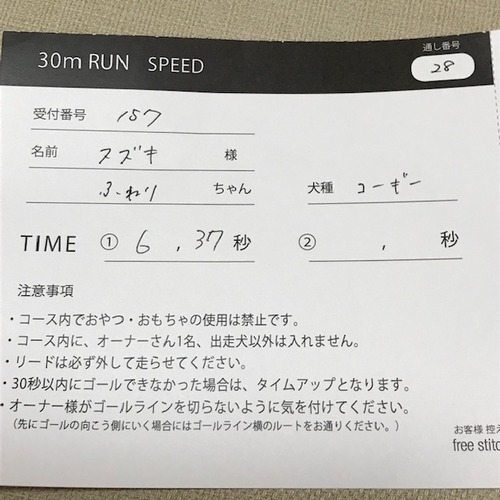 30m RUN SPEED
通し番号
28
受付番号 157
名前 スズキ 様
ふわり ちゃん 犬種 コーギー
TIME ① 6 , 37 秒 ② , 秒
注意事項
・コース内でおやつ・おもちゃの使用は禁止です。
・コース内に、オーナーさん1名、出走犬以外は入れません。
・リードは必ず外して走らせてください。
・30秒以内にゴールできなかった場合は、タイムアップとなります。
・オーナー様がゴールラインを切らないように気を付けてください。
（先にゴールの向こう側にいく場合にはゴールライン横のルートをお通りください。）
お客様 控え
free stitc